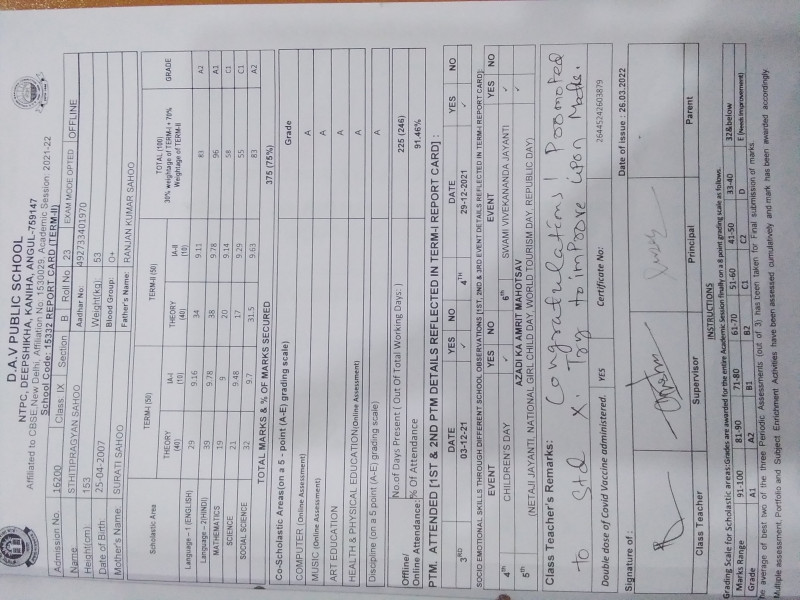 D.A.V PUBLIC SCHOOL
NTPC, DEEPSHIKHA, KANIHA, ANGUL-759147
Affiliated to CBSE, New Delhi, Affiliation No: 1530029, Academic Session: 2021-22
School Code: 15332 REPORT CARD (TERM-II)
Admission No. 16200 Class: IX Section B Roll No 23 EXAM MODE OPTED OFFLINE
Name STHITIPRAGYAN SAHOO Aadhar No: 492733401970
Height(cm) 153 Weight(kg) 53
Date of Birth 25-04-2007 Blood Group: O+
Mother's Name SURATI SAHOO Father's Name: RANJAN KUMAR SAHOO
Scholastic Area TERM-I (50) TERM-II (50) TOTAL (100) GRADE
THEORY (40) IA-I (10) THEORY (40) IA-II (10) 30% weightage of TERM-I + 70% Weightage of TERM-II
Language – 1 (ENGLISH) 29 9.16 34 9.11 83 A2
Language – 2(HINDI) 39 9.78 38 9.78 96 A1
MATHEMATICS 19 9 20 9.14 58 C1
SCIENCE 21 9.48 17 9.29 55 C1
SOCIAL SCIENCE 32 9.7 31.5 9.63 83 A2
TOTAL MARKS & % OF MARKS SECURED 375 (75%)
Co-Scholastic Areas(on a 5 - point (A-E) grading scale) Grade
COMPUTER (Online Assessment) A
MUSIC (Online Assessment) A
ART EDUCATION A
HEALTH & PHYSICAL EDUCATION(Online Assessment) A
Discipline (on a 5 point (A-E) grading scale) A
Offline/ No.of Days Present ( Out Of Total Working Days: ) 225 (246)
Online Attendance: % Of Attendance 91.46%
PTM. ATTENDED [1ST & 2ND PTM DETAILS REFLECTED IN TERM-I REPORT CARD] :
DATE YES NO DATE YES NO
3RD 03-12-21 ✓ 4TH 29-12-2021 ✓
SOCIO EMOTIONAL SKILLS THROUGH DIFFERENT SCHOOL OBSERVATIONS [1ST, 2ND & 3RD EVENT DETAILS REFLECTED IN TERM-I REPORT CARD]:
EVENT YES NO EVENT YES NO
4th CHILDREN'S DAY ✓ 6th SWAMI VIVEKANANDA JAYANTI ✓
5th AZADI KA AMRIT MAHOTSAV
(NETAJI JAYANTI, NATIONAL GIRL CHILD DAY, WORLD TOURISM DAY, REPUBLIC DAY) ✓
Class Teacher's Remarks: Congratulations! Poomoted
to Std X. Try to impoove upon Maths.
Double dose of Covid Vaccine administered. YES Certificate No: 26445242603879
Signature of : Date of issue : 26.03.2022
Class Teacher Supervisor Principal Parent
INSTRUCTIONS
Grading Scale for Scholastic areas:Grades are awarded for the entire Academic Session finally on a 8 point grading scale as follows.
Marks Range 91-100 81-90 71-80 61-70 51-60 41-50 33-40 32&below
Grade A1 A2 B1 B2 C1 C2 D E (Needs Improvement)
he average of best two of the three Periodic Assessments (out of 3) has been taken for Final submission of marks.
Multiple assessment, Portfolio and Subject Enrichment Activities have been assessed cumulatively and mark has been awarded accordingly.